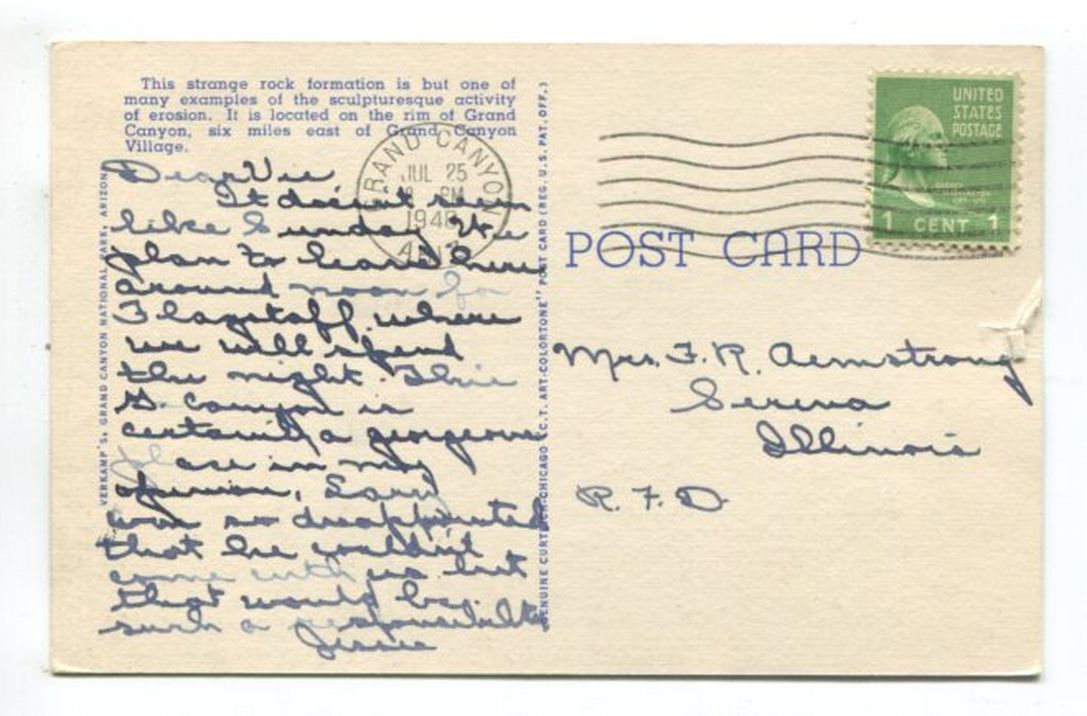 This strange rock formation is but one of
many examples of the sculpturesque activity
of erosion. It is located on the rim of Grand
Canyon, six miles east of Grand Canyon
Village.
Dear Vie
It doesnt seem
like Sunday. We
plan to leave here
around noon for
Flagstaff where
we will spend
the night. This
G. Canyon is
certainly a gorgeous
place in my
opinion,
was so disappointed
that he couldn't
come with us but
that would be
such a responsibility
Jessie
VERKAMP'S, GRAND CANYON NATIONAL PARK, ARIZONA
GENUINE CURTEICH-CHICAGO "C.T. ART-COLORTONE" POST CARD (REG. U.S. PAT. OFF.)
GRAND CANYON
JUL 25
PM
ARIZ.
UNITED
STATES
POSTAGE
1 CENT 1
POST CARD
Mrs. F. R. Armstrong
Serena
Illinois
R. F. D.